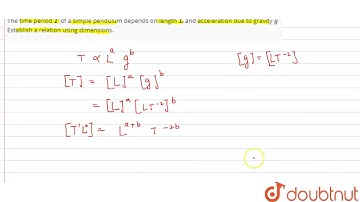 The time period T of a simple pendulum depends on length L and acceleration due to gravity g
Establish a relation using dimensions.
T ∝ L^a g^b
[g] = [LT^-2]
[T] = [L]^a [g]^b
= [L]^a [LT^-2]^b
[T^1L^0] = L^a+b T^-2b
doubtnut